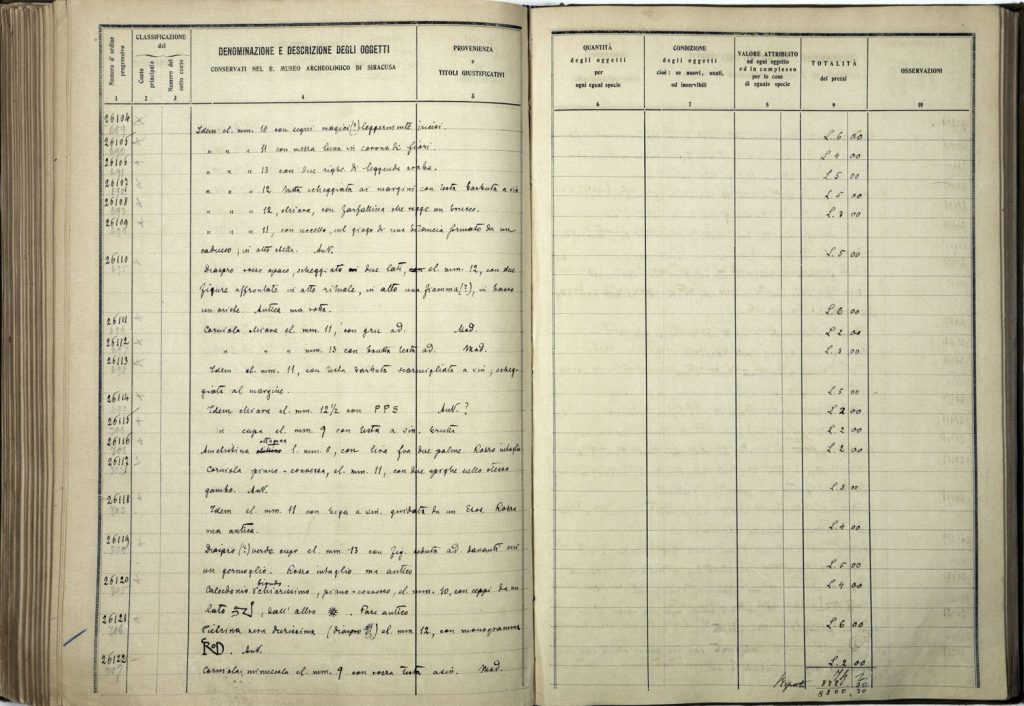 Numero d'ordine progressivo
CLASSIFICAZIONE del
Conto principale
Numero del sotto conto
DENOMINAZIONE E DESCRIZIONE DEGLI OGGETTI
CONSERVATI NEL R. MUSEO ARCHEOLOGICO DI SIRACUSA
PROVENIENZA
e
TITOLI GIUSTIFICATIVI
1 2 3 4 5
26104 Idem el. mm. 10 con segni magici (?) leggermente incisi.
26105 " " " 11 con mezza luna in corona di fiori.
26106 " " " 13 con due righe di leggenda araba.
26107 " " " 12 tutta scheggiata ai margini con testa barbuta a sin
26108 " " " 12, chiara, con farfallina che regge un bracco.
26109 " " " 11, con uccello, sul giogo di una bilancia formato da un
caduceo; in alto stella. Ant.
26110 Diaspro rosso opaco, scheggiato due lati, el. mm. 12, con due
figure affrontate in atto rituale, in alto una fiamma (?), in basso
Antica ma rotta.
26111 Corniola chiara el. mm. 11, con gru ad. Mod.
26112 " " " mm. 13 con brutta testa ad. Mod.
26113 Idem el. mm. 11, con testa barbata scarmigliata a sin; scheg-
giata al margine.
26114 Idem chiara el. mm. 12 1/2 con P P S Ant. ?
26115 " cupa el. mm. 9 con testa a sin. brutta
26116 Ametistina ottagona l. mm. 8, con lira fra due palme. Rozzo intaglio
26117 Corniola piano-convessa, el. mm. 11, con due spighe sullo stesso
gambo. Ant.
26118 Idem el. mm. 11 con biga a sin. guidata da un Eros. Rozza
ma antica.
26119 Diaspro (?) verde cupo el. mm 13 con fig. seduta ad. davanti cui
un germoglio. Rozzo intaglio ma antico
26120 Calcedonio biondo chiarissimo, piano-convesso, el. mm. 10, con ceppi da un
lato , dall'altro . Pare antico
26121 Pietrina nera durissima (diaspro ?) el. mm 12, con monogramma
. Ant.
26122 Corniola minuscola el. mm. 9 con rozza testa a sin. Mod.
QUANTITÀ
degli oggetti
per
ogni egual specie
CONDIZIONE
degli oggetti
cioè: se nuovi, usati,
od inservibili
VALORE ATTRIBUITO
ad ogni oggetto
ed in complesso
per le cose
di eguale specie
TOTALITÀ
dei prezzi
OSSERVAZIONI
6 7 8 9 10
L. 6 00
L. 4 00
L. 5 00
L. 5 00
L. 3 00
L. 5 00
L. 2 00
L. 2 00
L. 3 00
L. 5 00
L. 2 00
L. 2 00
L. 2 00
L. 3 00
L. 4 00
L. 5 00
L. 4 00
L. 6 00
L. 2 00
8800,20